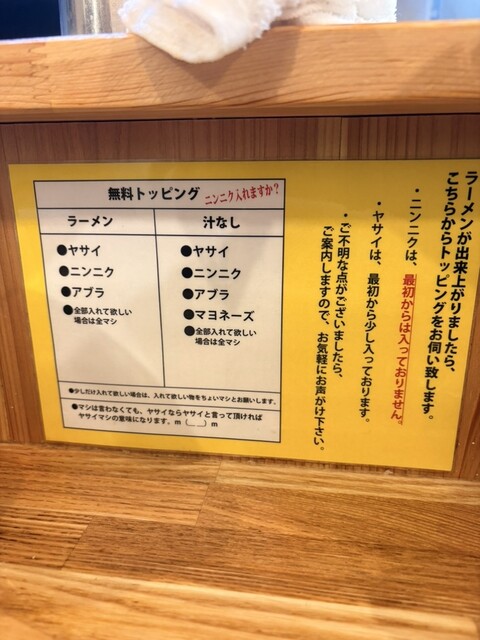 ラーメンが出来上がりましたら、
こちらからトッピングをお伺い致します。
・ニンニクは、最初からは入っておりません。
・ヤサイは、最初から少し入っております。
・ご不明な点がございましたら、
ご案内しますので、お気軽にお声がけ下さい。
無料トッピング ニンニク入れますか?
ラーメン
●ヤサイ
●ニンニク
●アブラ
●全部入れて欲しい
場合は全マシ
汁なし
●ヤサイ
●ニンニク
●アブラ
●マヨネーズ
●全部入れて欲しい
場合は全マシ
●少しだけ入れて欲しい場合は、入れて欲しい物をちょいマシとお願いします。
●マシは言わなくても、ヤサイならヤサイと言って頂ければ
ヤサイマシの意味になります。m(__)m